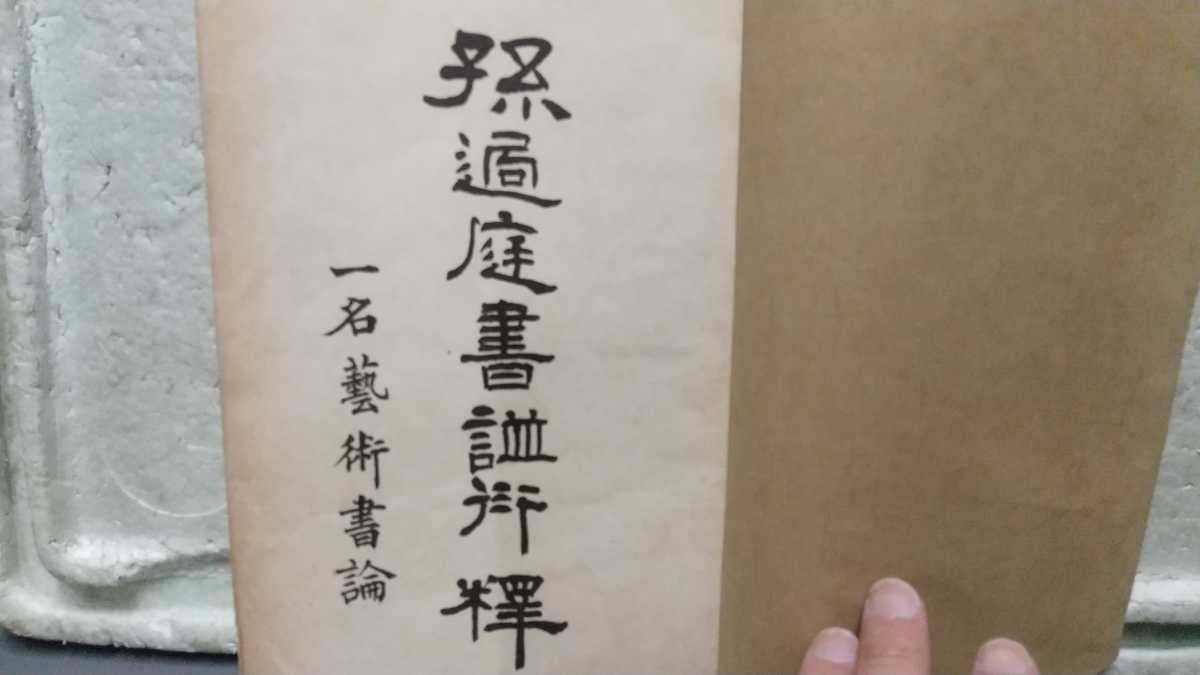 孫過庭書譜衍釋
一名藝術書論